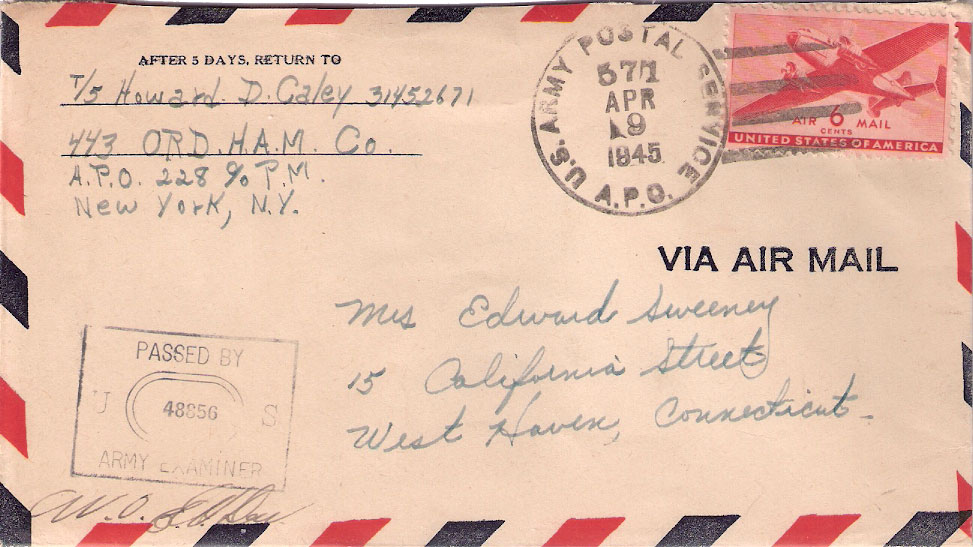 AFTER 5 DAYS, RETURN TO
T/5 Howard D. Caley 31452671
443 ORD. H.A.M. Co.
A.P.O. 228 % P.M.
New York, N.Y.
U.S. ARMY POSTAL SERVICE
571
APR
9
1945
A.P.O.
AIR 6 MAIL
CENTS
UNITED STATES OF AMERICA
VIA AIR MAIL
Mrs Edward Sweeney
15 California Street
West Haven, Connecticut.
PASSED BY
U 48856 S
ARMY EXAMINER
W.O.